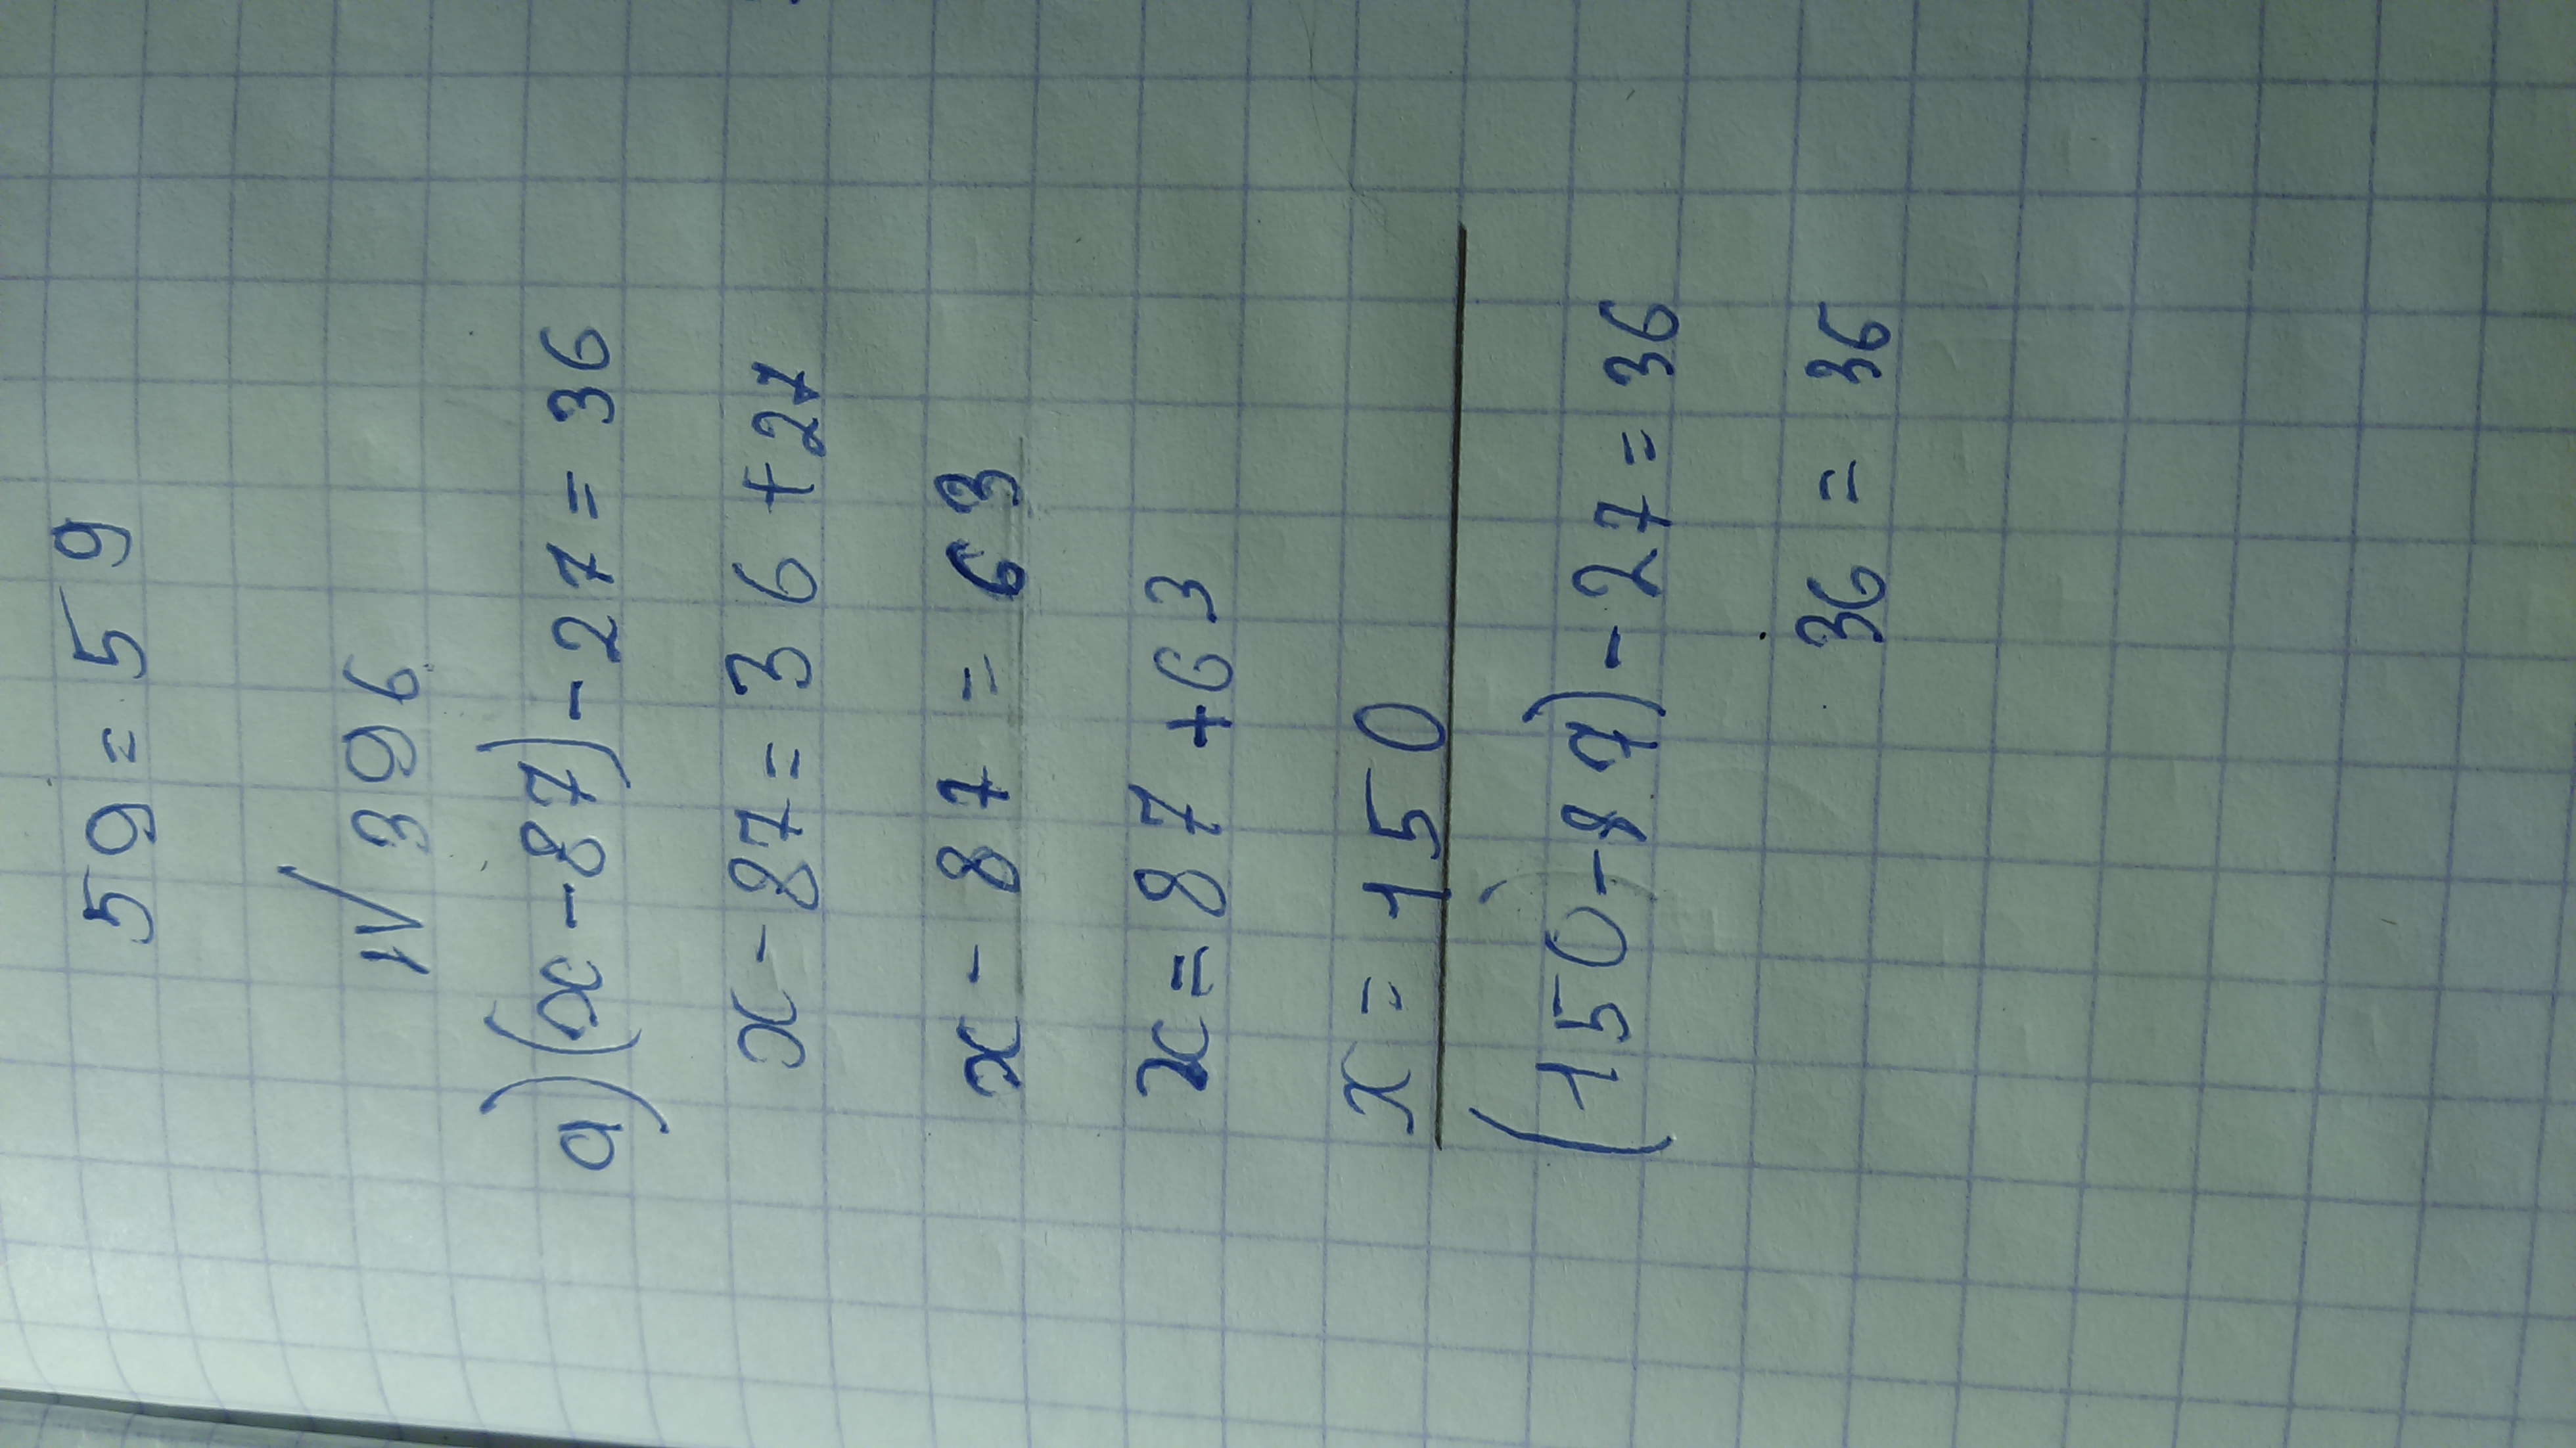 59=59
№ 396
а)(x-87)-27=36
x-87=36+27
x-87=63
x=87+63
x=150
(150-87)-27=36
36=36